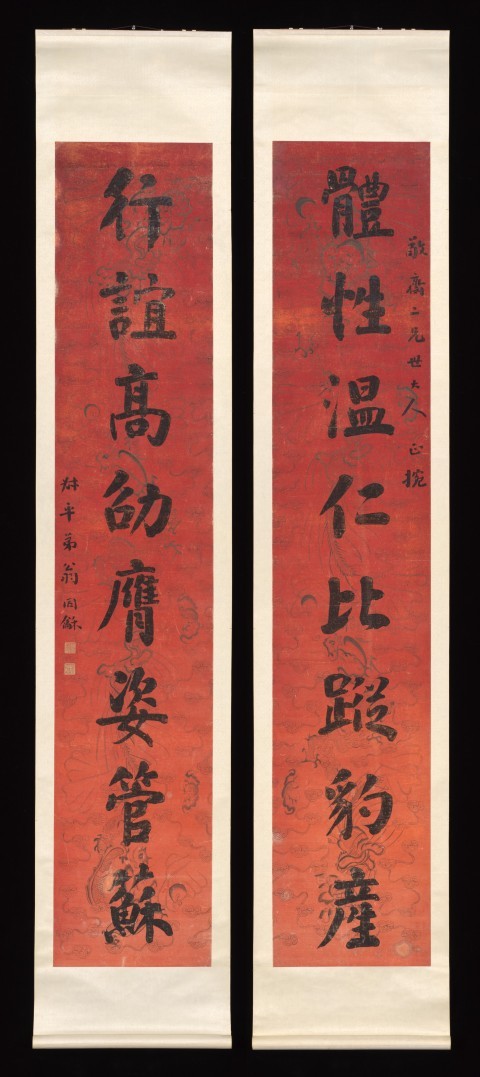 敬齋二兄世大人正捥
體性溫仁比蹤豹產
行誼高劭膺姿管蘇
叔平弟翁同龢